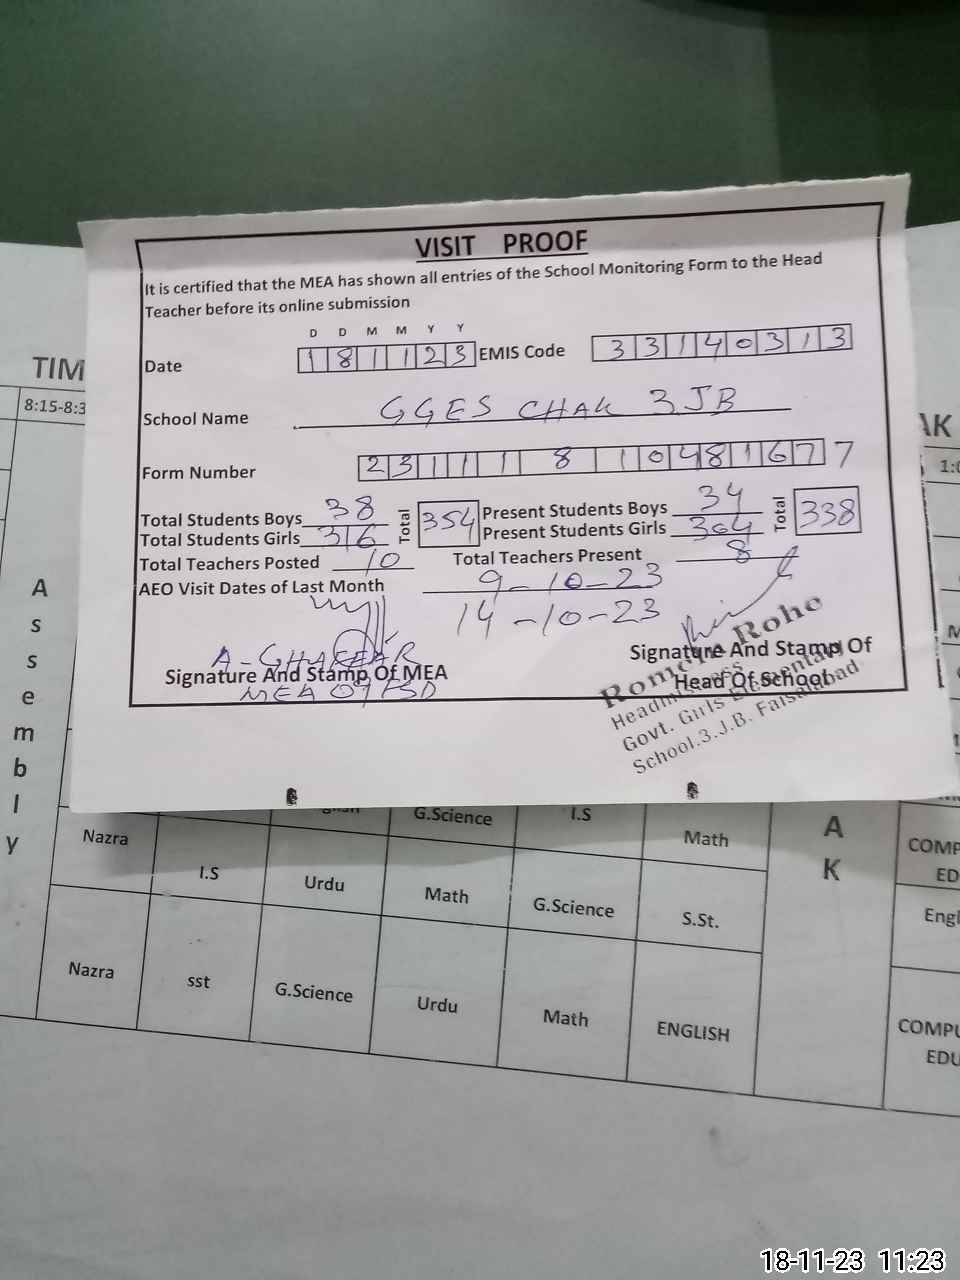 VISIT PROOF
It is certified that the MEA has shown all entries of the School Monitoring Form to the Head
Teacher before its online submission
D D M M Y Y
Date 181123 EMIS Code 33140313
School Name GGES CHAK 3JB
Form Number 231118104816777
Total Students Boys 38 Total 354 Present Students Boys 34 Total 338
Total Students Girls 316 Present Students Girls 304
Total Teachers Posted 10 Total Teachers Present 8
AEO Visit Dates of Last Month 9-10-23
14-10-23
A-GHAFFAR
Signature And Stamp Of MEA
MEA 07 FSD
Signature And Stamp Of
Head Of School
Roho
Headmistress
Govt. Girls Elementary
School.3.J.B. Faisalabad
TIM
8:15-8:3
AK
1:0
Assembly
G.Science I.S Math
Nazra I.S Urdu Math G.Science S.St.
A
K
COMP
ED
Engl
Nazra sst G.Science Urdu Math ENGLISH
COMPU
EDU
18-11-23 11:23